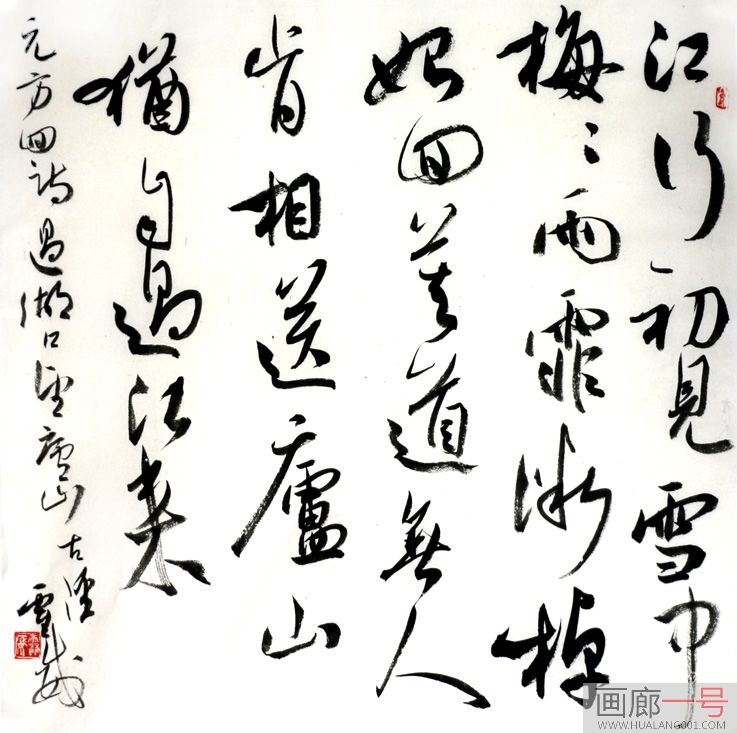 江行初見雪中
梅〻雨霏微棹
始回莫道無人
肯相送廬山
猶自過江來
元方回詩過湖口望廬山 古
画廊一号
WWW.HUALANG001.COM